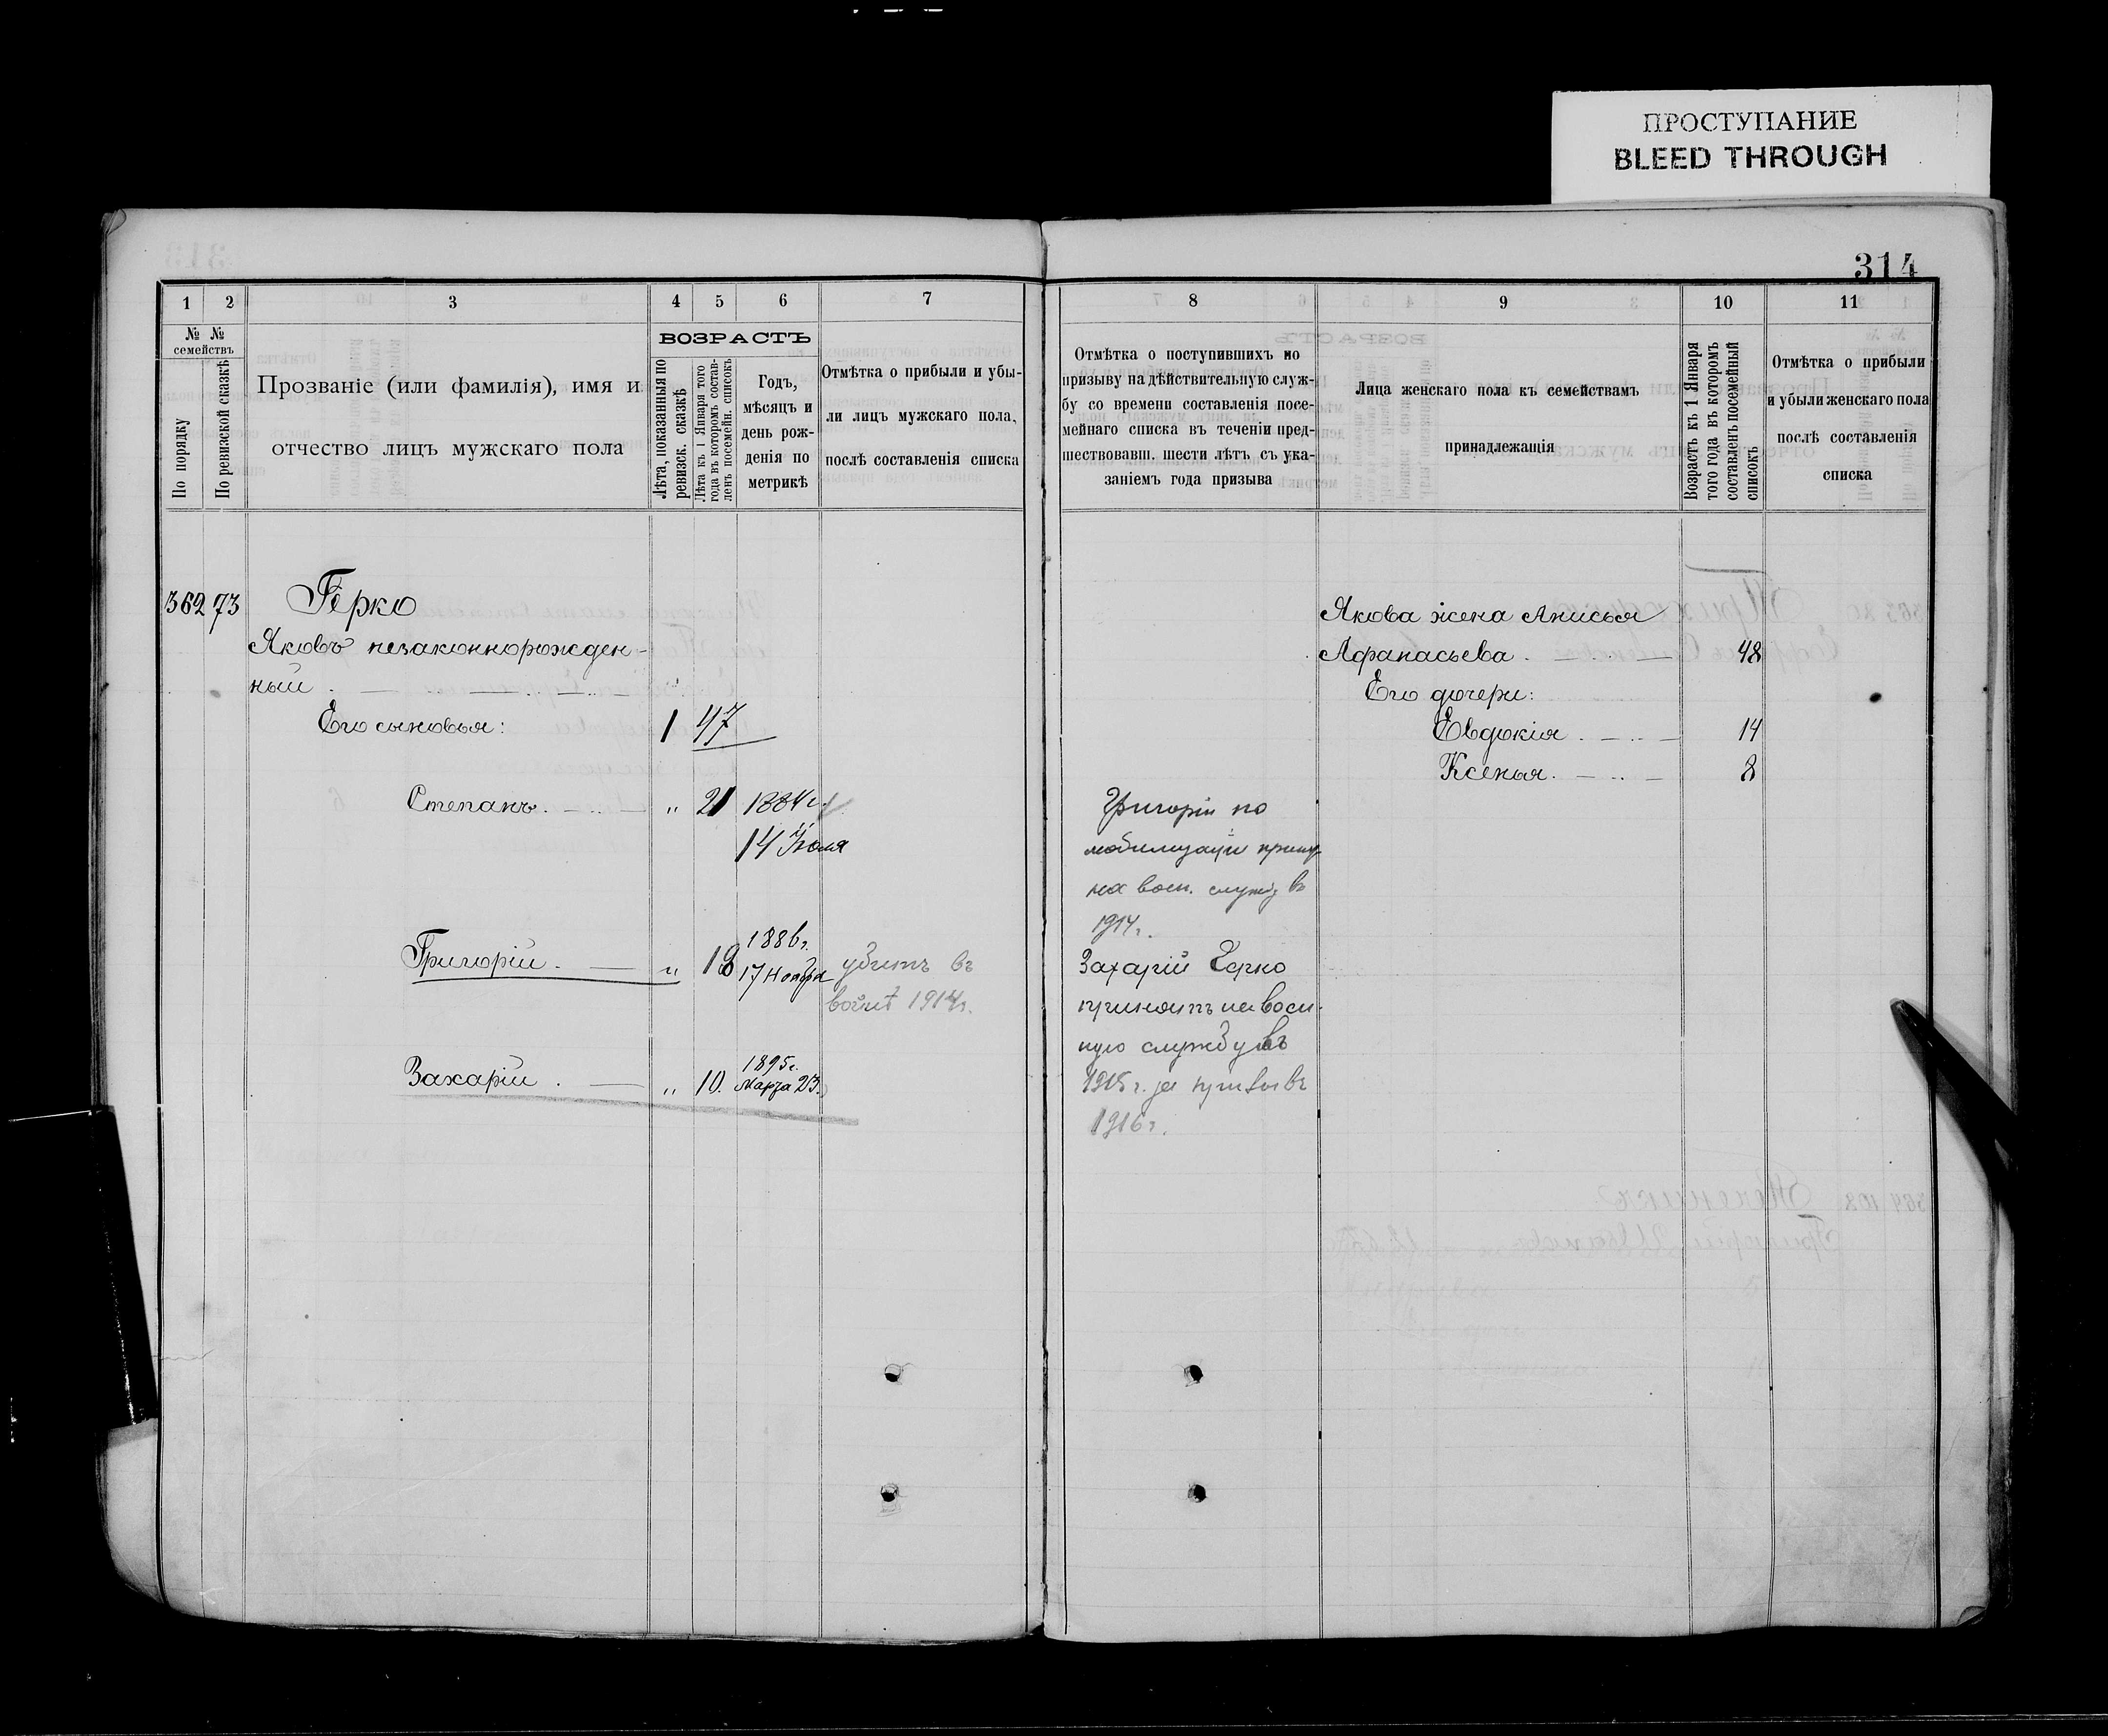 ПРОСТУПАНИЕ
BLEED THROUGH
314
1 2 3 4 5 6 7
№ № семействъ
По порядку
По ревизской сказкѣ
Прозваніе (или фамилія), имя и
отчество лицъ мужскаго пола
ВОЗРАСТЪ
Лѣта, показанныя по
ревизск. сказкѣ
Лѣта къ 1 Января того
года въ которомъ состав-
ленъ посемейн. списокъ
Годъ,
мѣсяцъ и
день рож-
денія по
метрикѣ
Отмѣтка о прибыли и убы-
ли лицъ мужскаго пола,
послѣ составленія списка
362 73 Герко
Яковъ незаконнорожден-
ный
Его сыновья: 1 47
Степанъ. „ 21 1884 г.
14 Іюля
Григорій. „ 18 1886 г.
17 Ноября
убитъ въ
войнѣ 1914 г.
Захарій. „ 10. 1895 г.
Марта 23.
8 9 10 11
Отмѣтка о поступившихъ по
призыву на дѣйствительную служ-
бу со времени составленія посе-
мейнаго списка въ теченіи пред-
шествовавш. шести лѣтъ съ ука-
заніемъ года призыва
Лица женскаго пола къ семействамъ
принадлежащія
Возрастъ къ 1 Января
того года въ которомъ
составленъ посемейный
списокъ
Отмѣтка о прибыли
и убыли женскаго пола
послѣ составленія
списка
Якова жена Анисья
Афанасьева. 48
Его дочери:
Евдокія. 14
Ксенья. 8
Григорій по
мобилизаціи
на воен. служб въ
1914 г.
Захарій Герко
принятъ на воен-
ную службу въ
1915 г. за призывъ
1916 г.